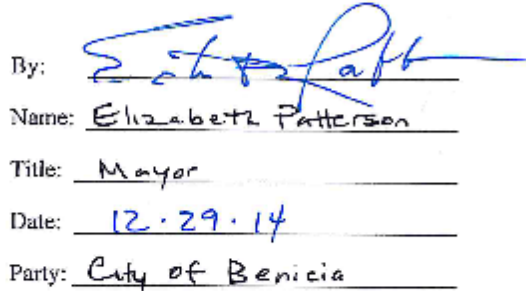 By:
Name: Elizabeth Patterson
Title: Mayor
Date: 12·29·14
Party: City of Benicia